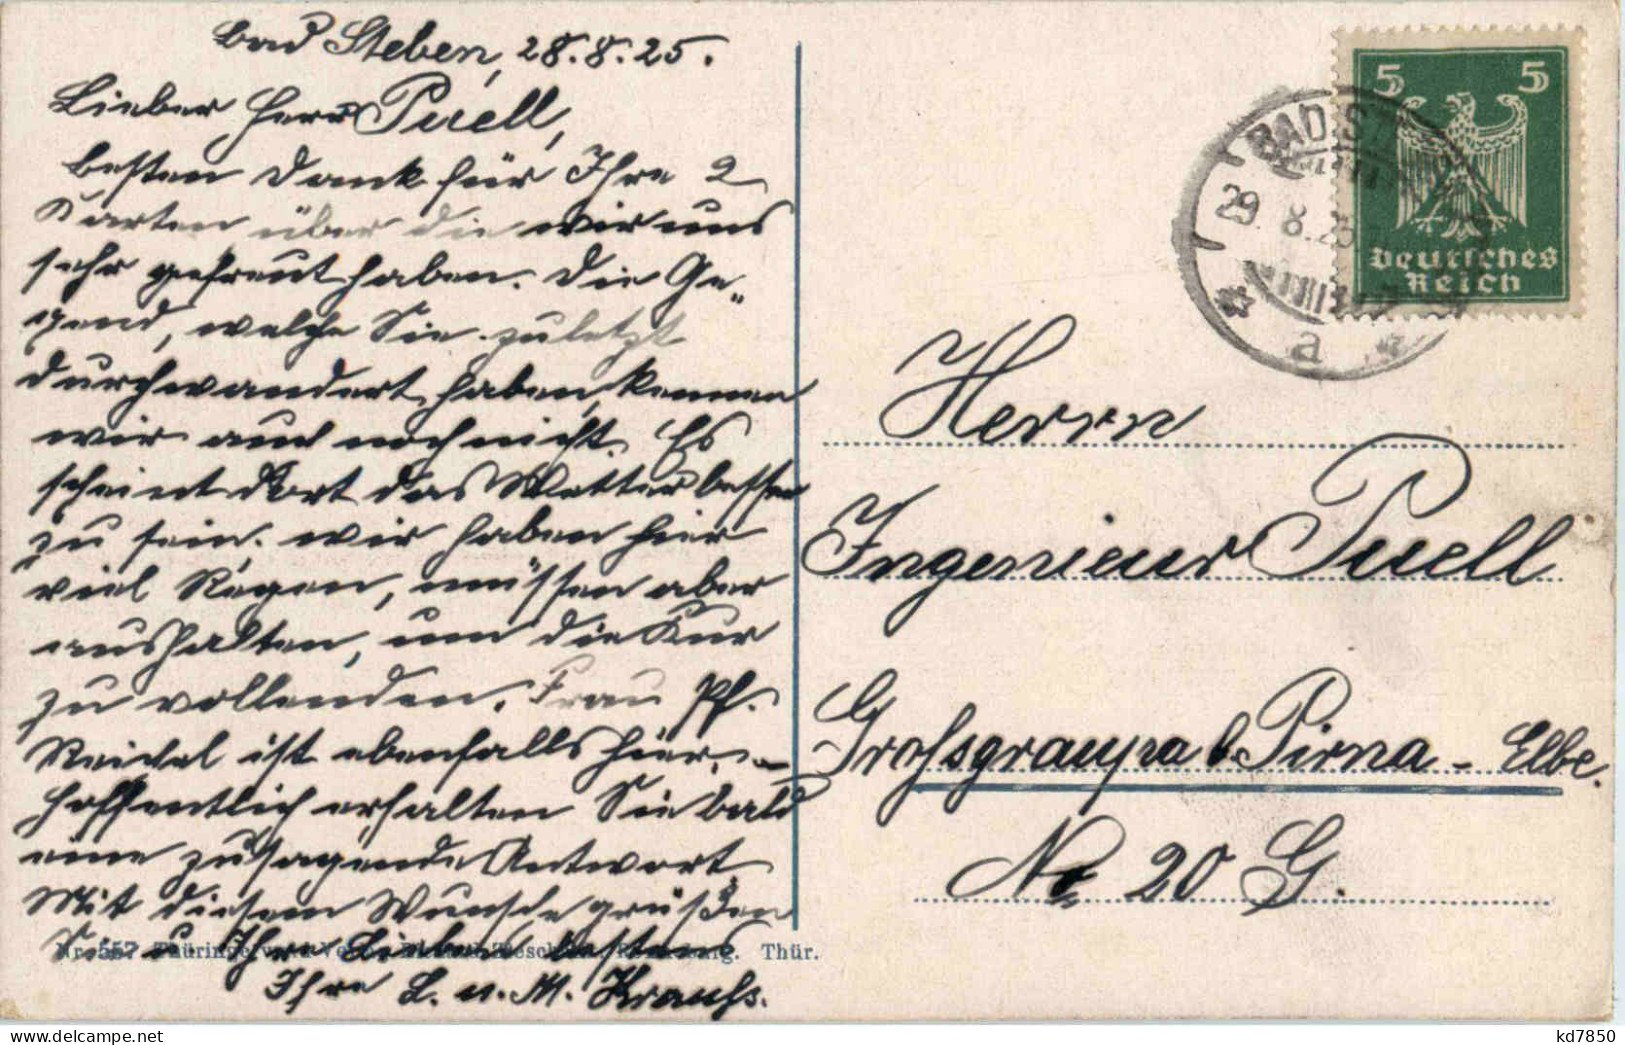 Bad Steben, 28.8.25.
Lieber Herr Puell,
besten Dank für Ihre 2
Karten über die wir uns
sehr gefreut haben. Die Ge-
gend, welche Sie zuletzt
durchwandert haben, kennen
wir auch noch nicht. Es
scheint dort das Wetter besser
zu sein. Wir haben hier
viel Regen, müssen aber
aushalten, um die Kur
zu vollenden. Frau Pf.
Reichel ist ebenfalls hier. –
Hoffentlich erhalten Sie bald
eine zusagende Antwort
Mit diesem Wunsche grüßen
Sie u. Ihre Lieben bestens
Ihre L. u. M. Krauss.
Nr. 557 Thüringer Thür.
BAD ST
29. 8. 25
a
5 5
Deutsches
Reich
Herrn
Ingenieur Puell
Grossgraupa b. Pirna - Elbe.
No 20 G.
kd7850